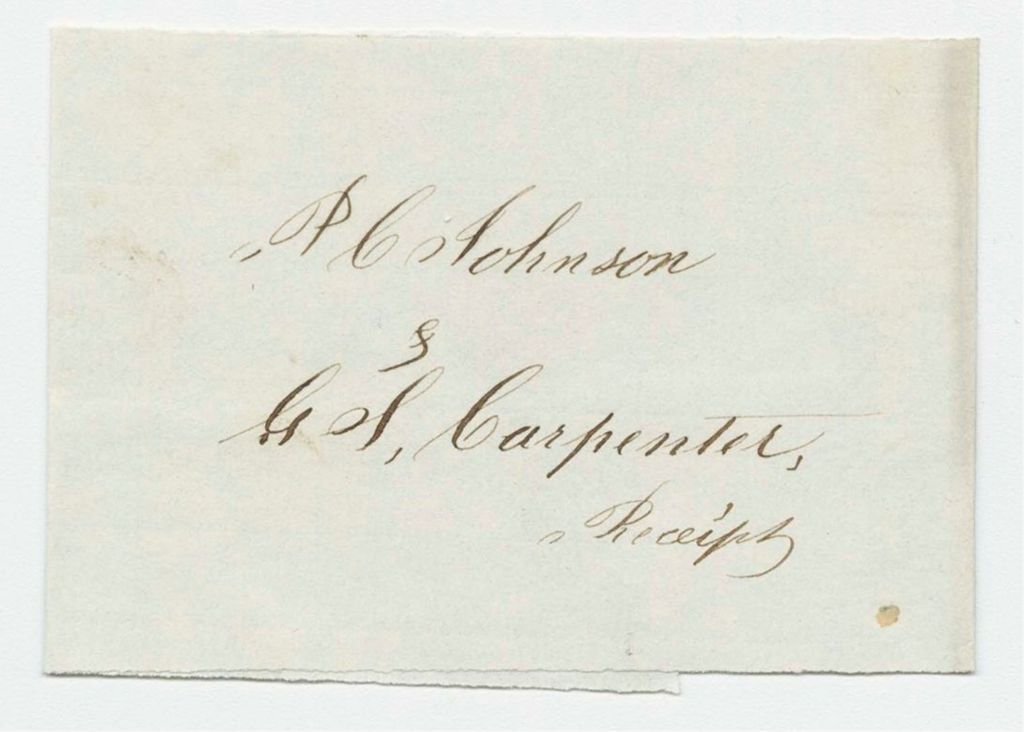 P C Johnson
&
G S, Carpenter,
Receipt